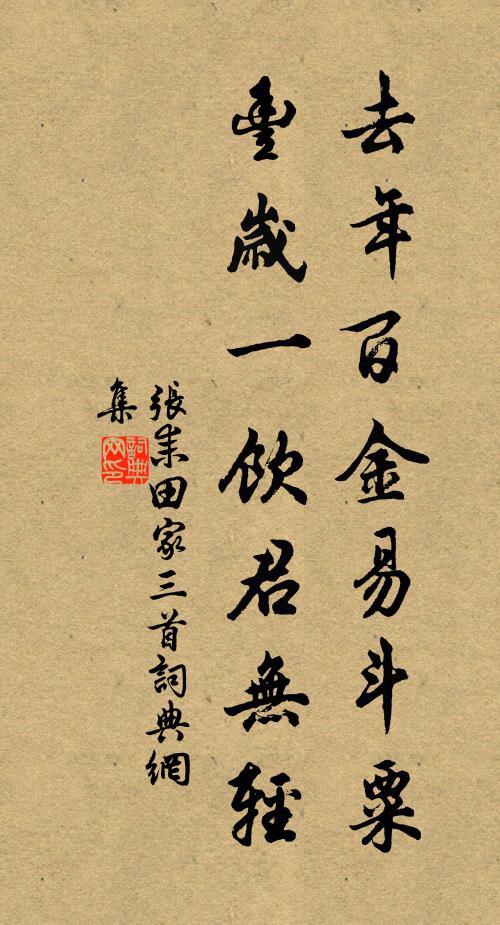 去年百金易斗粟
豐歲一飲君無輕
張耒田家三首詞典網
集
詞典
网印